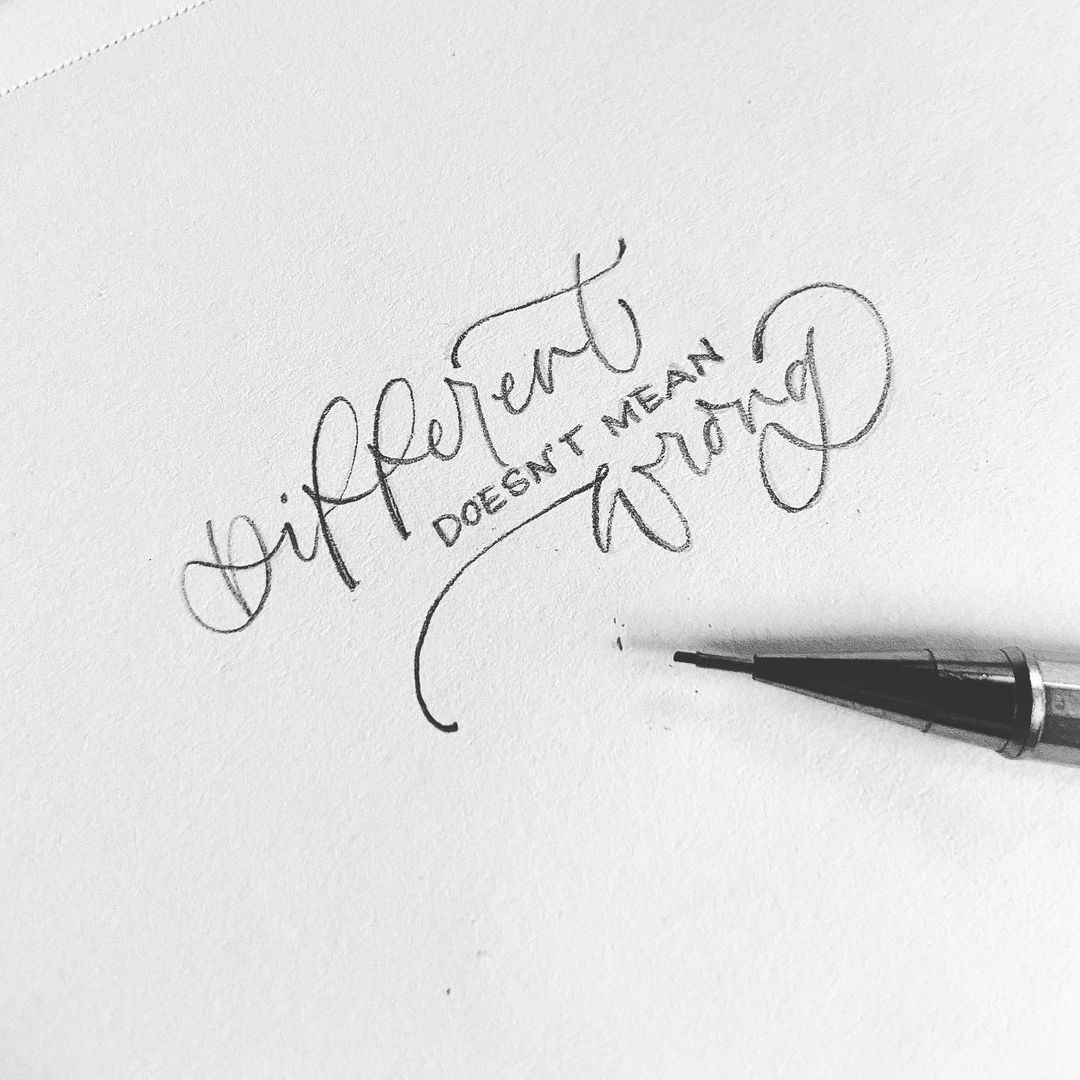 Different
DOESN'T MEAN
wrong